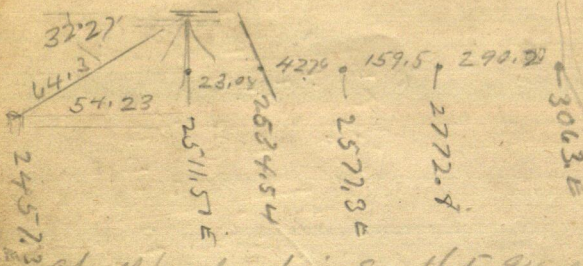 32.27'
64.3
54.23
23.03
4276
159.5
290.2
2457.3
2511.5 E
2534.54
2577.3 E
2772.8
3063. E